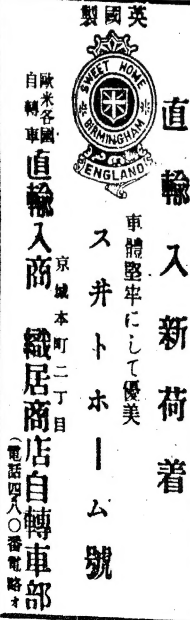 英國製
SWEET HOME
BIRMINGHAM
ENGLAND
直輸入新荷着
車體堅牢にして優美
スヰトホーム號
京城本町二丁目
歐米各國自轉車
直輸入商 織居商店自轉車部
(電話四八〇番電略オ